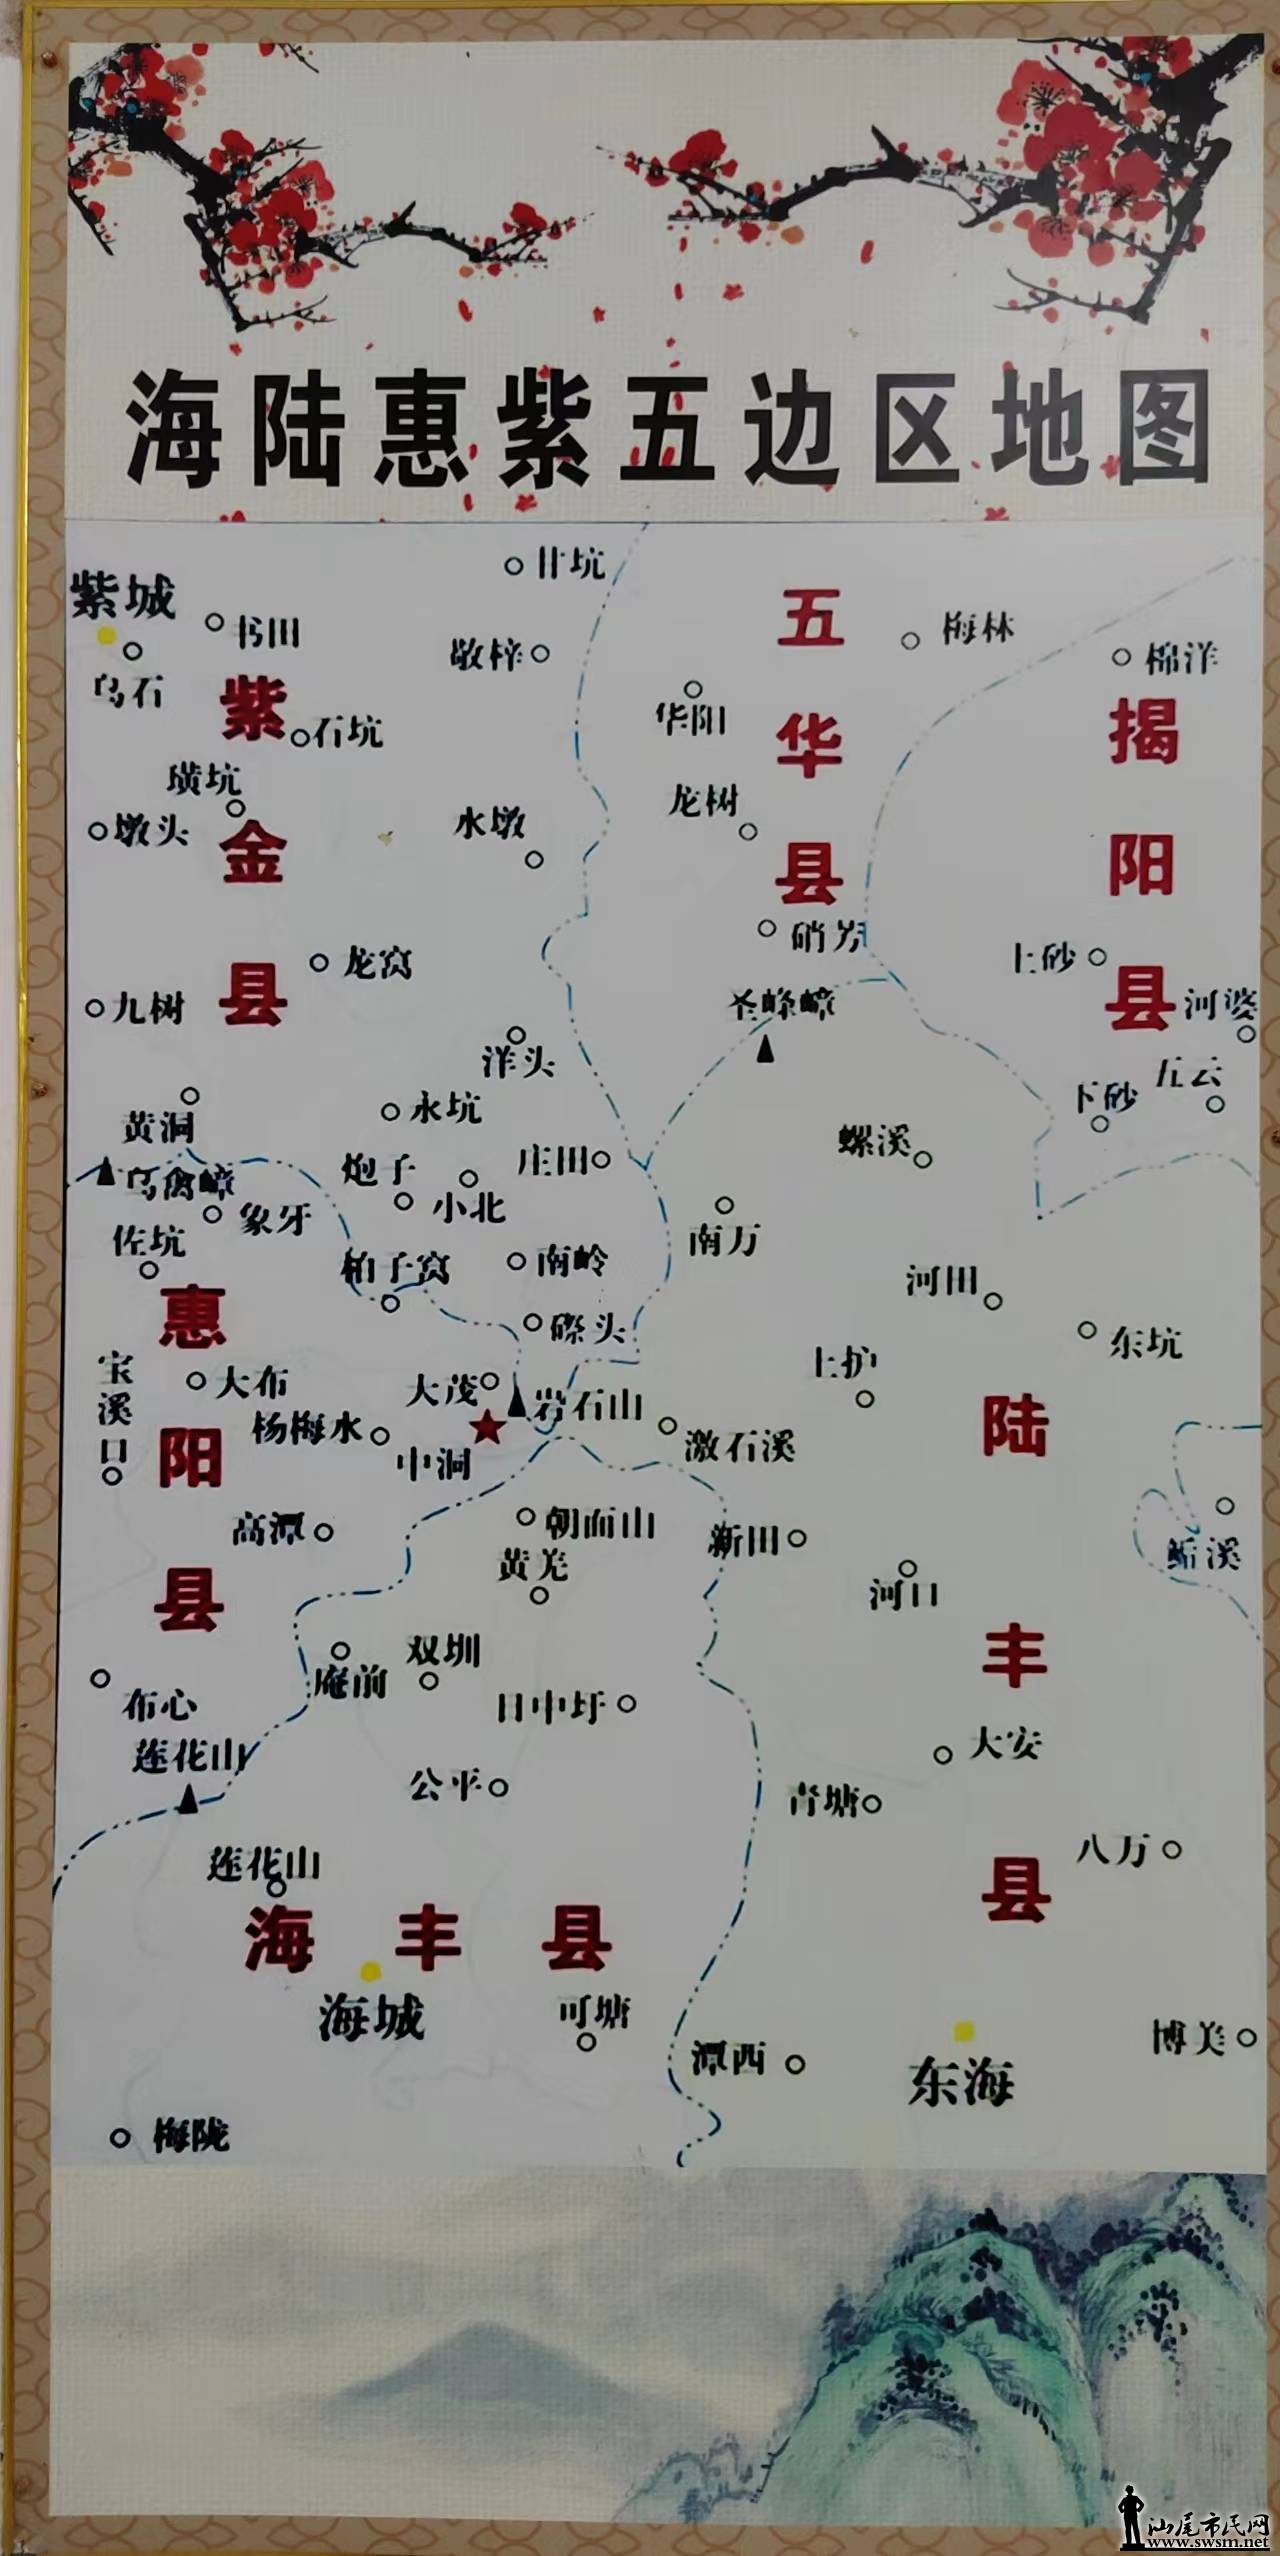 海陆惠紫五边区地图
甘坑
紫城
书田
五
梅林
敬梓
棉洋
乌石
紫
华阳
揭
石坑
华
璜坑
龙树
墩头
水墩
金
县
阳
硝芳
龙窝
上砂
九树
县
圣峰嶂
县
河婆
洋头
五云
黄洞
永坑
下砂
螺溪
乌禽嶂
炮子
庄田
象牙
小北
佐坑
南万
柏子窝
南岭
河田
惠
磜头
东坑
宝溪口
上护
大布
大茂
岩石山
陆
杨梅水
激石溪
阳
中洞
高潭
朝面山
新田
黄羌
河口
县
双圳
丰
庵前
布心
日中圩
莲花山
大安
公平
青塘
八万
莲花山
县
海丰县
海城
可塘
潭西
博美
东海
梅陇
汕尾市民网
www.swsm.net